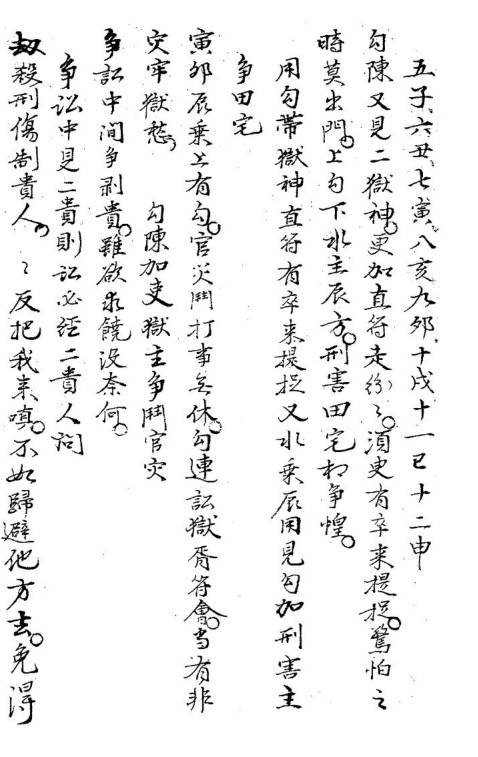 五子、六丑、七寅、八亥九夘、十戌十一巳十二申
勾陳又見二獄神。更加直符走紛々。須臾有卒来提捉。驚怕之
時莫出門。上勾下水主辰方。刑害田宅相争惶。
用勾帶獄神直符有卒来提捉又水乗辰用見勾加刑害主
争田宅
寅夘辰乗上有勾。官災鬥打事無休。勾連訟獄胥符會。当有非
灾牢獄愁。 勾陳加吏獄主争鬥官灾
争訟中間争剥貴。雖欲求饒没奈何。
争訟中見二貴則訟必經二貴人問
劫殺刑傷制貴人。〻反把我来嗔。不如歸避他方去。免得